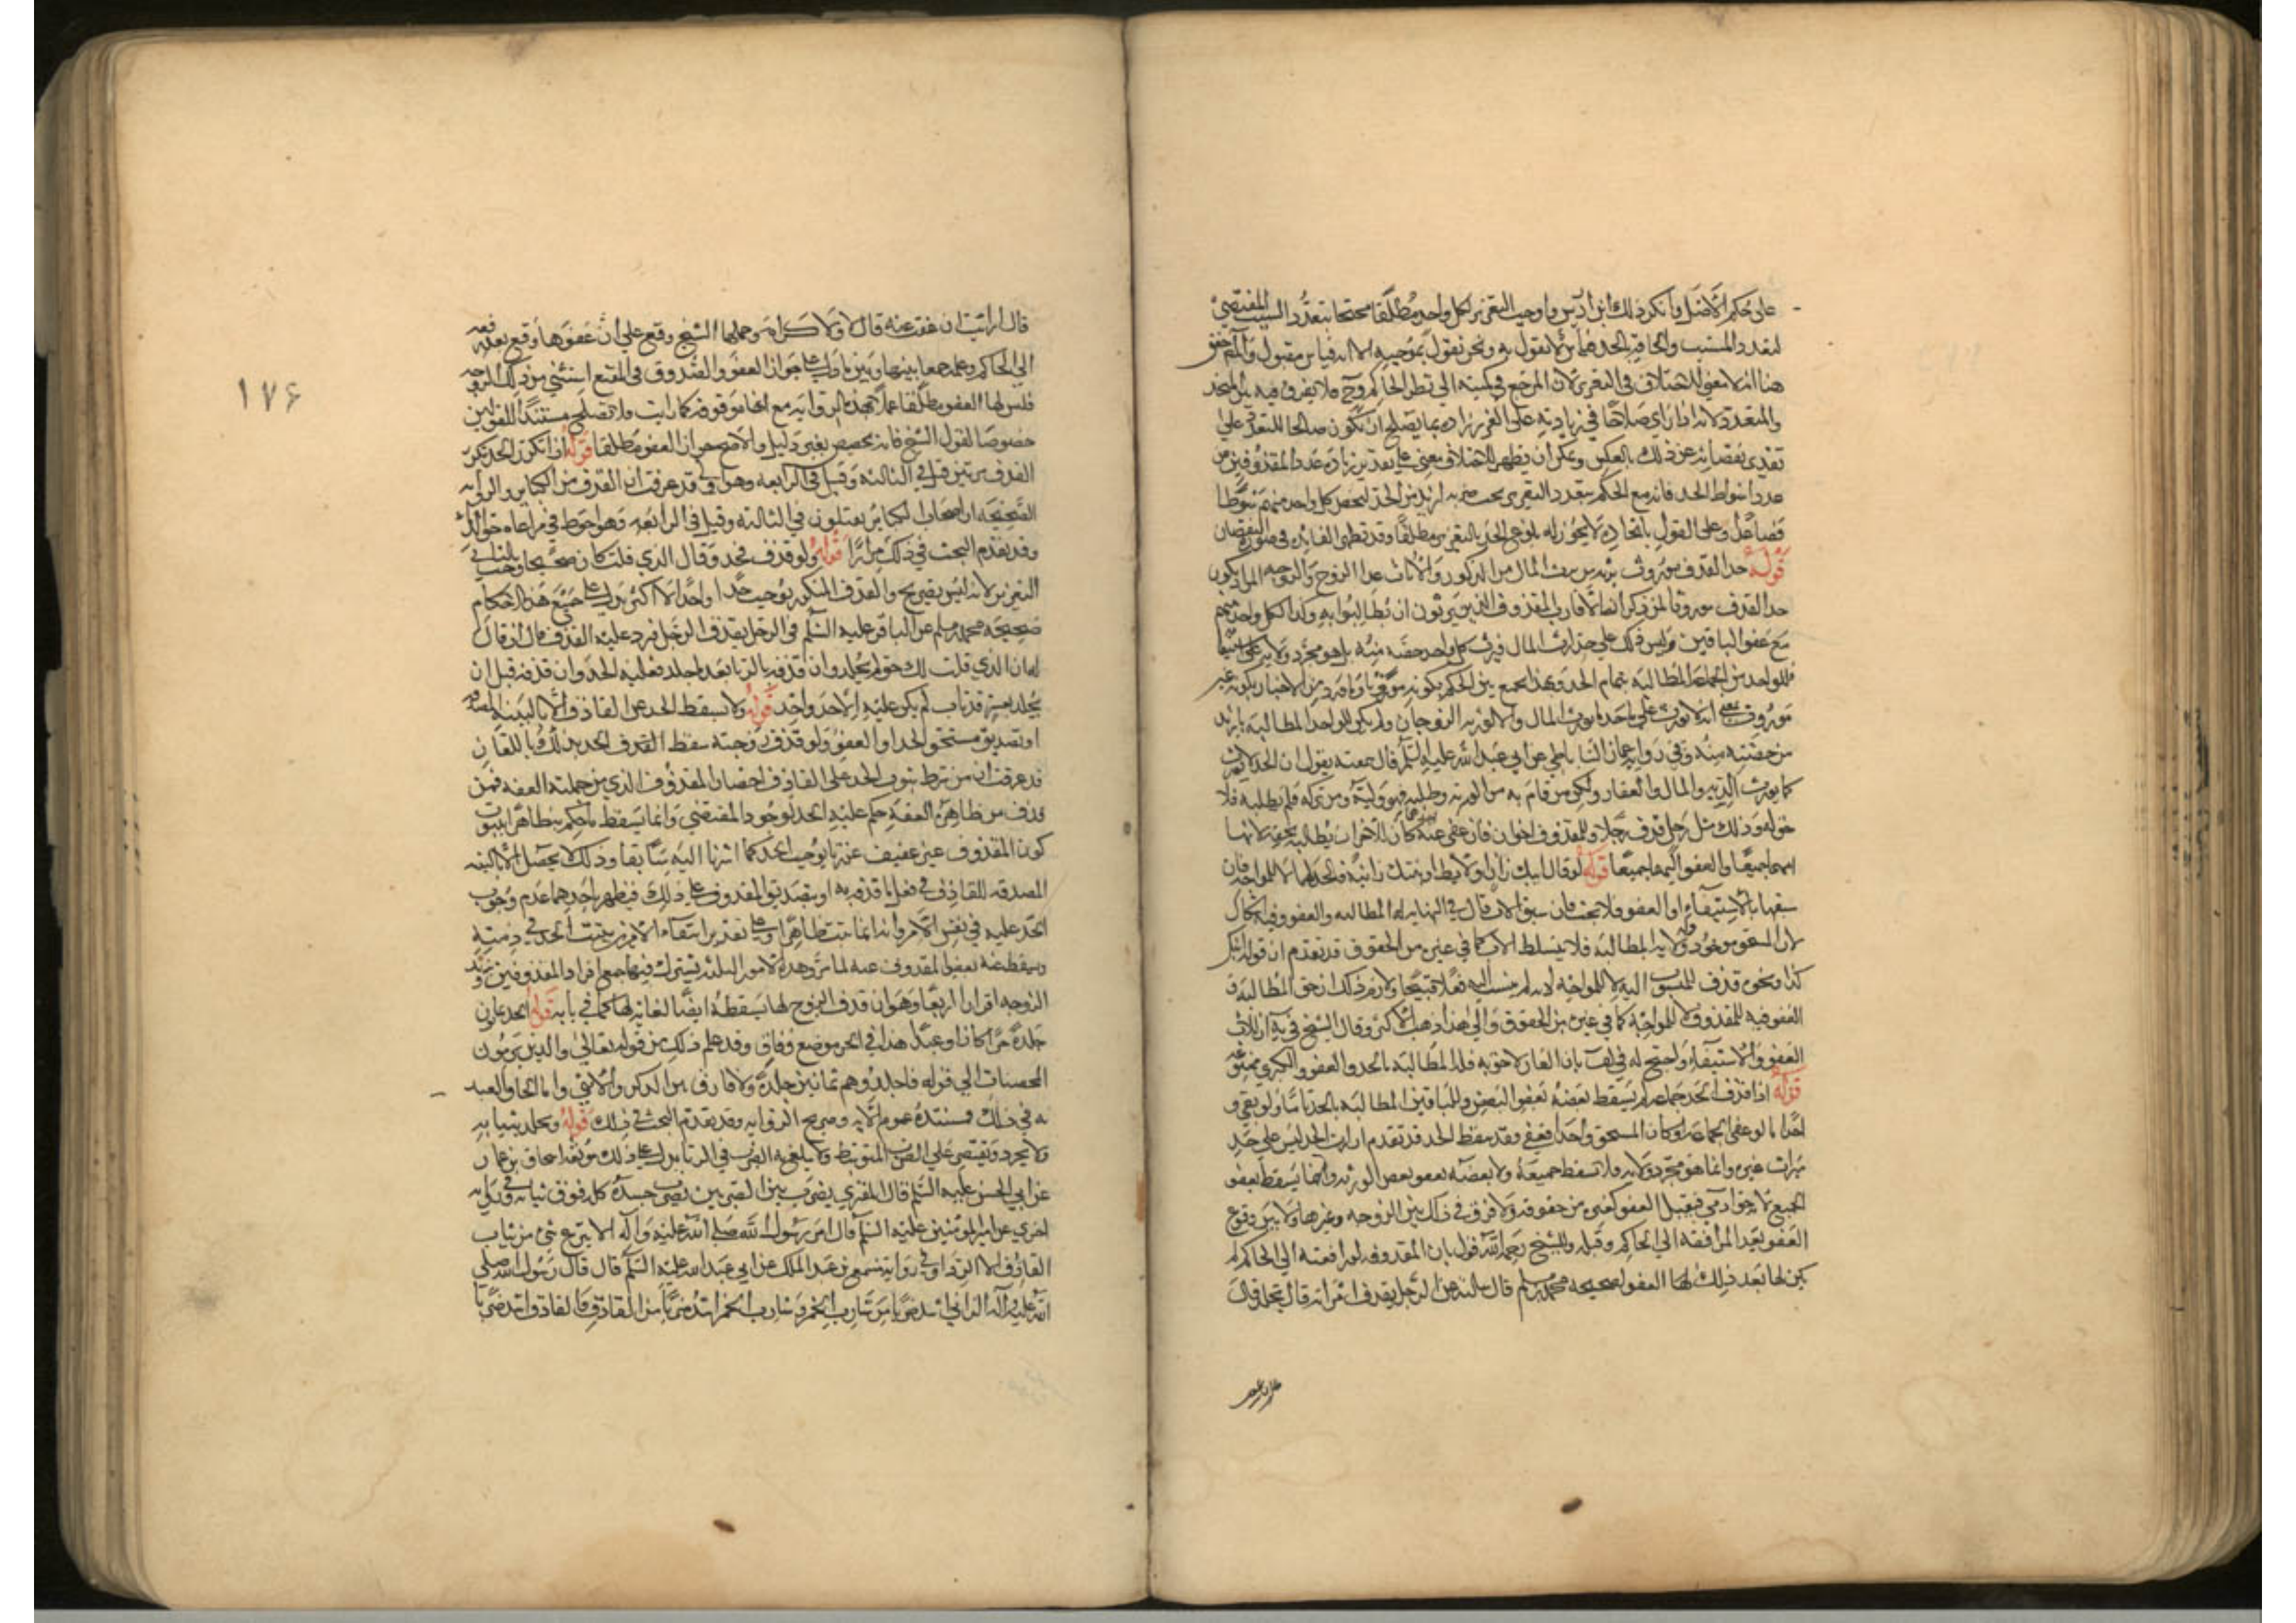 على حكم الأصل وانكر ذلك ابن ادريس واوجب التعزير لكل واحد مطلقا محتجا بتعدد السبب المقتضي
لتعدد المسبب والحاقه بالحد قياس لا نقول به ونحن نقول بموجبه الا انه قياس مقبول والمحقق
هنا انه لا معنى للاختلاف في التعزير لان المرجع في كميته الى نظر الحاكم وح فلا يفرق فيه بين المتحد
والمتعدد لانه اذا راى صلاحا في زيادته على التعزير زاده بما يصلح ان يكون صالحا للتعدد على
تقدير نقصانه عن ذلك وبالعكس ويمكن ان يظهر للاختلاف معنى على تقدير زيادة عدد المقذوفين عن
عدد اسواط الحد فانه مع الحكم بتعدد التعزير يجب ضربه ازيد من الحد ليخص كل واحد منهم سوطا
فصاعدا وعلى القول باتحاده لا يجوز له بلوغ الحد بالتعزير مطلقا وقد تظهر الفائدة في صورة النقصان
قوله حد القذف موروث يرثه من يرث المال من الذكور والاناث عدا الزوج والزوجه المراد بكون
حد القذف موروثا لمن ذكر ان لاقارب المقذوف الذين يرثون ان يطالبوا به وكذا لكل واحد منهم
مع عفو الباقين وليس ذلك على حد ارث المال فيرث كل واحد حصته منه بل هو مجرد ولاية على استيفائه
فللواحد من الجماعة المطالبة بتمام الحد وبهذا يجمع بين الحكم بكونه موروثا وما ورد من الاخبار بكونه غير
موروث بمعنى انه لا يورث على حد ما يورث المال والا لورثه الزوجان ولم يكن للواحد المطالبة بازيد
من حصته منه وفي رواية عمار الساباطي عن ابي عبد الله عليه السلم قال سمعته يقول ان الحد لا يورث
كما يورث الدية والمال والعقار ولكن من قام به من الورثة وطلبه فهو وليه ومن تركه فلم يطلبه فلا
حق له وذلك مثل رجل قذف رجلا وللمقذوف اخوان فان عفى عنه احدهما كان للاخر ان يطلبه بحقه لانها
امهما جميعا والعفو اليهما جميعا قوله لو قال ابنك زان او لايط او بنتك زانية فالحد لهما لا للمواجه فان
سبقا بالاستيفاء او العفو فلا بحث فان سبق الاب قال في النهاية له المطالبة والعفو وفيه اشكال
لان المستحق موجود وله ولاية المطالبة فلا يتسلط الاب كما في غيره من الحقوق قد تقدم ان قوله ابنك
كذا ونحوه قذف للمنسوب اليه لا للمواجه لانه لم ينسب اليه فعلا قبيحا ولازم ذلك ان حق المطالبة و
العفو فيه للمقذوف لا للمواجه كما في غيره من الحقوق والى هذا ذهب الاكثر وقال الشيخ في ية ان للاب
العفو والاستيفاء واحتج له في لف بان العار لاحق به فله المطالبة بالحد والعفو والكبرى ممنوعة
قوله اذا قذف احد جماعة لم يسقط بعضه بعفو البعض وللباقين المطالبة بالحد تاما ولو بقي و
احدا اما لو عفى الجماعة او كان المستحق واحدا فعفى فقد سقط الحد قد تقدم ان ارث الحد ليس على حد
ميراث غيره وانما هو مجرد ولاية فلا يسقط جميعه ولا بعضه بعفو بعض الورثة وانما يسقط بعفو
الجميع لانه حق ادمي فيقبل العفو كغيره من حقوقه ولا فرق في ذلك بين الزوجه وغيرها ولا بين وقوع
العفو بعد المرافعة الى الحاكم وقبله وللشيخ رحمه الله قول بان المقذوفة لو رافعته الى الحاكم لم
يكن لها بعد ذلك العفو لصحيحة محمد بن مسلم قال سالته عن الرجل يقذف امراته قال يجلد قال
قال ارايت ان عفت عنه قال لا ولا كرامه وحملها الشيخ وقع على ان عفوها وقع بعد رفعه
الى الحاكم وعلمه جمعا بينها وبين ما دل على جواز العفو والصدوق في المقنع استثنى من ذلك الزوجه
فليس لها العفو مطلقا عملا بهذه الرواية مع انها موقوفة كما رايت ولا تصلح مستندا للقولين
خصوصا لقول الشيخ فانه تخصيص بغير دليل والاصح جواز العفو مطلقا قوله اذا تكرر الحد بتكرر
القذف مرتين قتل في الثالثة وقيل في الرابعة وهو اولى قد عرفت ان القذف من الكباير والرواية
الصحيحة ان اصحاب الكباير يقتلون في الثالثة وقيل في الرابعة وهو احوط في مراعاة حق الدماء
وقد تقدم البحث في ذلك مرارا قوله ولو قذف فحد وقال الذي قلت كان صحيحا وجب بالثاني
التعزير لانه ليس بصريح والقذف المتكرر يوجب حدا واحدا لا اكثر يدل على جميع هذه الاحكام
صحيحة محمد بن مسلم عن الباقر عليه السلم في الرجل يقذف الرجل فيرد عليه القذف قال ان قال
له ان الذي قلت لك حق لم يجلد وان قذفه بالزنا بعد ما جلد فعليه الحد وان قذفه قبل ان
يجلد بعشر قذفات لم يكن عليه الا حد واحد قوله ولا يسقط الحد عن القاذف الا بالبينة المصدقة
او تصديق مستحق الحد او العفو ولو قذف زوجته سقط القذف الحد بذلك وباللعان
قد عرفت ان من شرط ثبوت الحد على القاذف احصان المقذوف الذي من جملته العفة فمن
قذف من ظاهره العفة حكم عليه بالحد لوجود المقتضي وانما يسقط الحكم ظاهرا بثبوت
كون المقذوف غير عفيف عن ما يوجب الحد كما اشرنا اليه سابقا وذلك يحصل بالبينة
المصدقة للقاذف في فعل ما قذفه به او بتصديق المقذوف على ذلك فيظهر باحدهما عدم وجوب
الحد عليه في نفس الامر وانه انما يثبت ظاهرا وعلى تقدير انتفاء الامرين يثبت الحد في ذمته
ويسقط عنه بعفو المقذوف عنه لما مر وهذه الامور الثلثة يشترك فيها جميع افراد المقذوفين وتزيد
الزوجه افرادا رابعا وهو ان قذف الزوج لها يسقطه ايضا لعانه لها كما في بابه قوله الحد ثمانون
جلدة حرا كان او عبدا هذا في الحر موضع وفاق وقد علم ذلك من قوله تعالى والذين يرمون
المحصنات الى قوله فاجلدوهم ثمانين جلدة ولا فارق بين الذكر والانثى واما الحاق العبد
به في ذلك فمستنده عموم الاية وصريح الرواية وقد تقدم البحث في ذلك قوله ويجلد بثيابه
ولا يجرد ويقتصر على الضرب المتوسط ولا يبلغ به الضرب في الزنا يدل على ذلك موثقة اسحاق بن عمار
عن ابي الحسن عليه السلم قال المفتري يضرب بين الضربين يضرب جسده كله فوق ثيابه وفي رواية
اخرى عن امير المؤمنين عليه السلم قال امر رسول الله صلى الله عليه وآله الا ينزع شئ من ثياب
القاذف الا الرداء وفي رواية مسمع بن عبد الملك عن ابي عبد الله عليه السلم قال قال رسول الله صلى
الله عليه وآله الزاني اشد ضربا من شارب الخمر وشارب الخمر اشد ضربا من القاذف والقاذف اشد ضربا
١٧۶